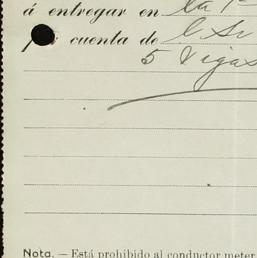 á entregar en la
por cuenta de l Sr
5 Vigas
Nota. — Está prohibido al conductor meter